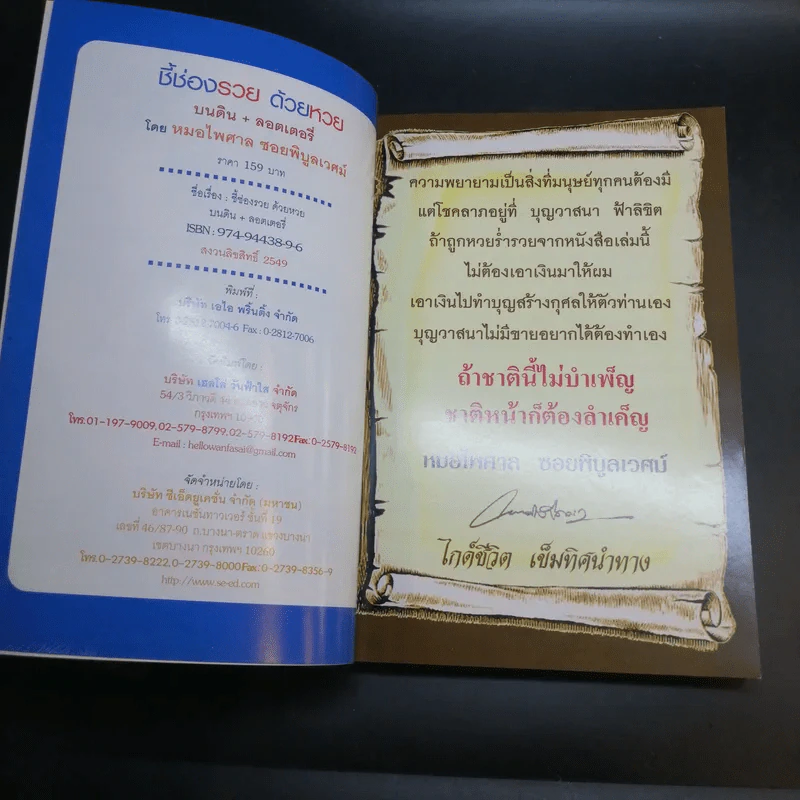 ชี้ช่องรวย ด้วยหวย
บนดิน + ลอตเตอรี่
โดย หมอไพศาล ซอยพิบูลเวศม์
ราคา 159 บาท
ชื่อเรื่อง : ชี้ช่องรวย ด้วยหวย
บนดิน + ลอตเตอรี่
ISBN : 974-94438-9-6
สงวนลิขสิทธิ์ 2549
พิมพ์ที่ :
บริษัท เอไอ พริ้นติ้ง จำกัด
โทร. Fax : 0-2812-7006
จัดพิมพ์โดย :
บริษัท เฮลโล่ วันฟ้าใส จำกัด
54/3 วิภาวดี จตุจักร
กรุงเทพฯ
โทร.01-197-9009,02-579-8799,02-579-8192 Fax:0-2579-8192
E-mail : hellowanfasai@gmail.com
จัดจำหน่ายโดย :
บริษัท ซีเอ็ดยูเคชั่น จำกัด (มหาชน)
อาคารเนชั่นทาวเวอร์ ชั้นที่ 19
เลขที่ 46/87-90 ถ.บางนา-ตราด แขวงบางนา
เขตบางนา กรุงเทพฯ 10260
โทร.0-2739-8222,0-2739-8000 Fax:0-2739-8356-9
http://www.se-ed.com
ความพยายามเป็นสิ่งที่มนุษย์ทุกคนต้องมี
แต่โชคลาภอยู่ที่ บุญวาสนา ฟ้าลิขิต
ถ้าถูกหวยร่ำรวยจากหนังสือเล่มนี้
ไม่ต้องเอาเงินมาให้ผม
เอาเงินไปทำบุญสร้างกุศลให้ตัวท่านเอง
บุญวาสนาไม่มีขายอยากได้ต้องทำเอง
ถ้าชาตินี้ไม่บำเพ็ญ
ชาติหน้าก็ต้องลำเค็ญ
หมอไพศาล ซอยพิบูลเวศม์
ไกด์ชีวิต เข็มทิศนำทาง